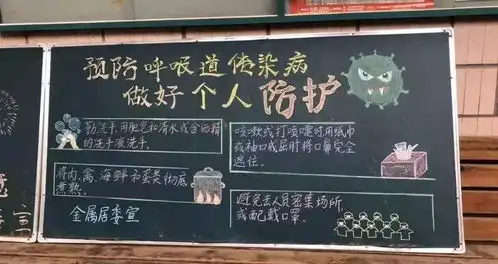 预防呼吸道传染病
做好个人防护
勤洗手,用肥皂和清水或含酒精
的洗手液洗手。
咳嗽或打喷嚏时用纸巾
或袖口或屈肘将口鼻完全
遮住。
将肉、禽、海鲜和蛋类彻底
煮熟。
避免去人员密集场所,
或配戴口罩。
金属居委宣